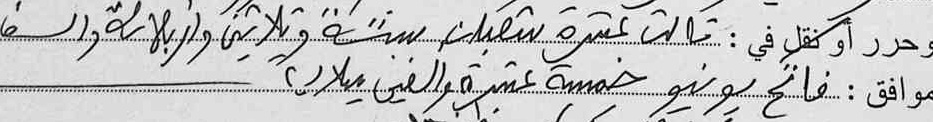 وحرر أو نقل في : ثالث عشرة شعبان سنة وثلاثين وأربعمائة وألف
موافق : فاتح يونيو خمسة عشرة وألفين ميلادي